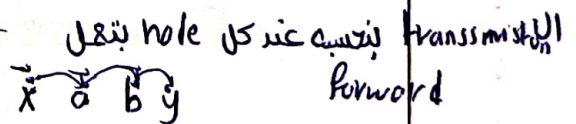 ال transsmistion بنحسبه عند كل hole بتعمل
forward
x a b y